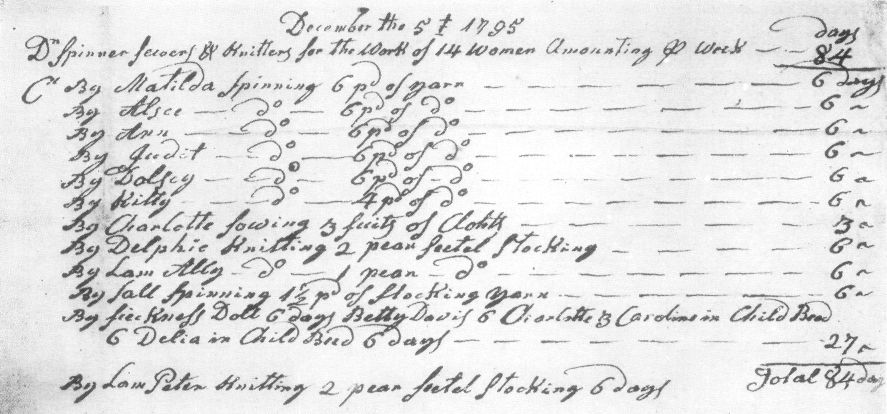 December the 5t 1795
days
Dr Spinner sewers & Knitters for the Work of 14 Women Amounting P Week — — 84
Cr By Matilda Spinning 6 pd of yarn — — — — — — — — 6 days
By Alsee — do — 6 pd of do — — — — — — — — 6 "
By Ann — do — 6 pd of do — — — — — — — — 6 "
By Judit — do — 6 pd of do — — — — — — — — 6 "
By Dolsey — do — 6 pd of do — — — — — — — — 6 "
By Kitty — do — 4 pd of do — — — — — — — — 6 "
By Charlotte sowing 3 suits of Cloths — — — — — — 3 "
By Delphie Knitting 2 pear seetel Stocking — — — — 6 "
By Lam Ally — do — 1 pear — do — — — — — — — 6 "
By Sall Spinning 1 1/2 pd of Stocking yarn — — — — — — 6 "
By seekness Doll 6 days Betty Davis 6 Charlotte 3 Caroline in Child Beed
6 Delia in Child Beed 6 days — — — — — — — — 27 "
Total 84 days
By Lam Peter Knitting 2 pear seetel Stocking 6 days